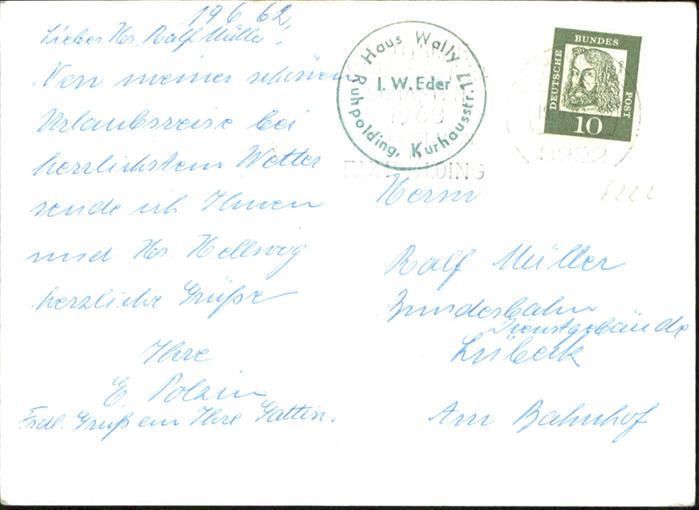 19 6 62
Lieber Hr. Ralf Müller!
Von meiner schönen
Urlaubsreise bei
herrlichstem Wetter
sende ich Ihnen
und Hr. Hellwig
herzliche Grüße
Ihre
E. Polzin
Frdl. Gruß an Ihre Gattin.
Haus Wally
I. W. Eder
Ruhpolding, Kurhausstr. 11
RUHPOLDING
DEUTSCHE BUNDES POST
10
8222
Herrn
Ralf Müller
Bundesbahn
Dienstgebäude
Lübeck
Am Bahnhof